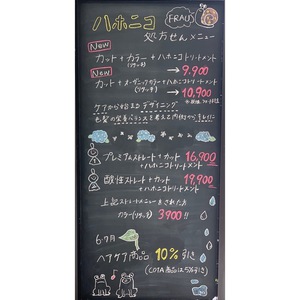 ハホニコ FRAU
処方せんメニュー
New
カット+カラー+ハホニコトリートメント
(リタッチ) → 9,900
New
カット+オーガニックカラー+ハホニコトリートメント
(リタッチ) → 10,900
ケアから始まるデザイニング
色髪の栄養バランスを考えて内側からキレイに
プレミアムストレート+カット 16,900
+ハホニコトリートメント
酸性ストレート+カット 19,900
+ハホニコトリートメント
上記ストレートメニューをされた方
カラー(リタッチ) 3900!!
6.7月
ヘアケア商品 10%引き
(COTA商品は5%引き)